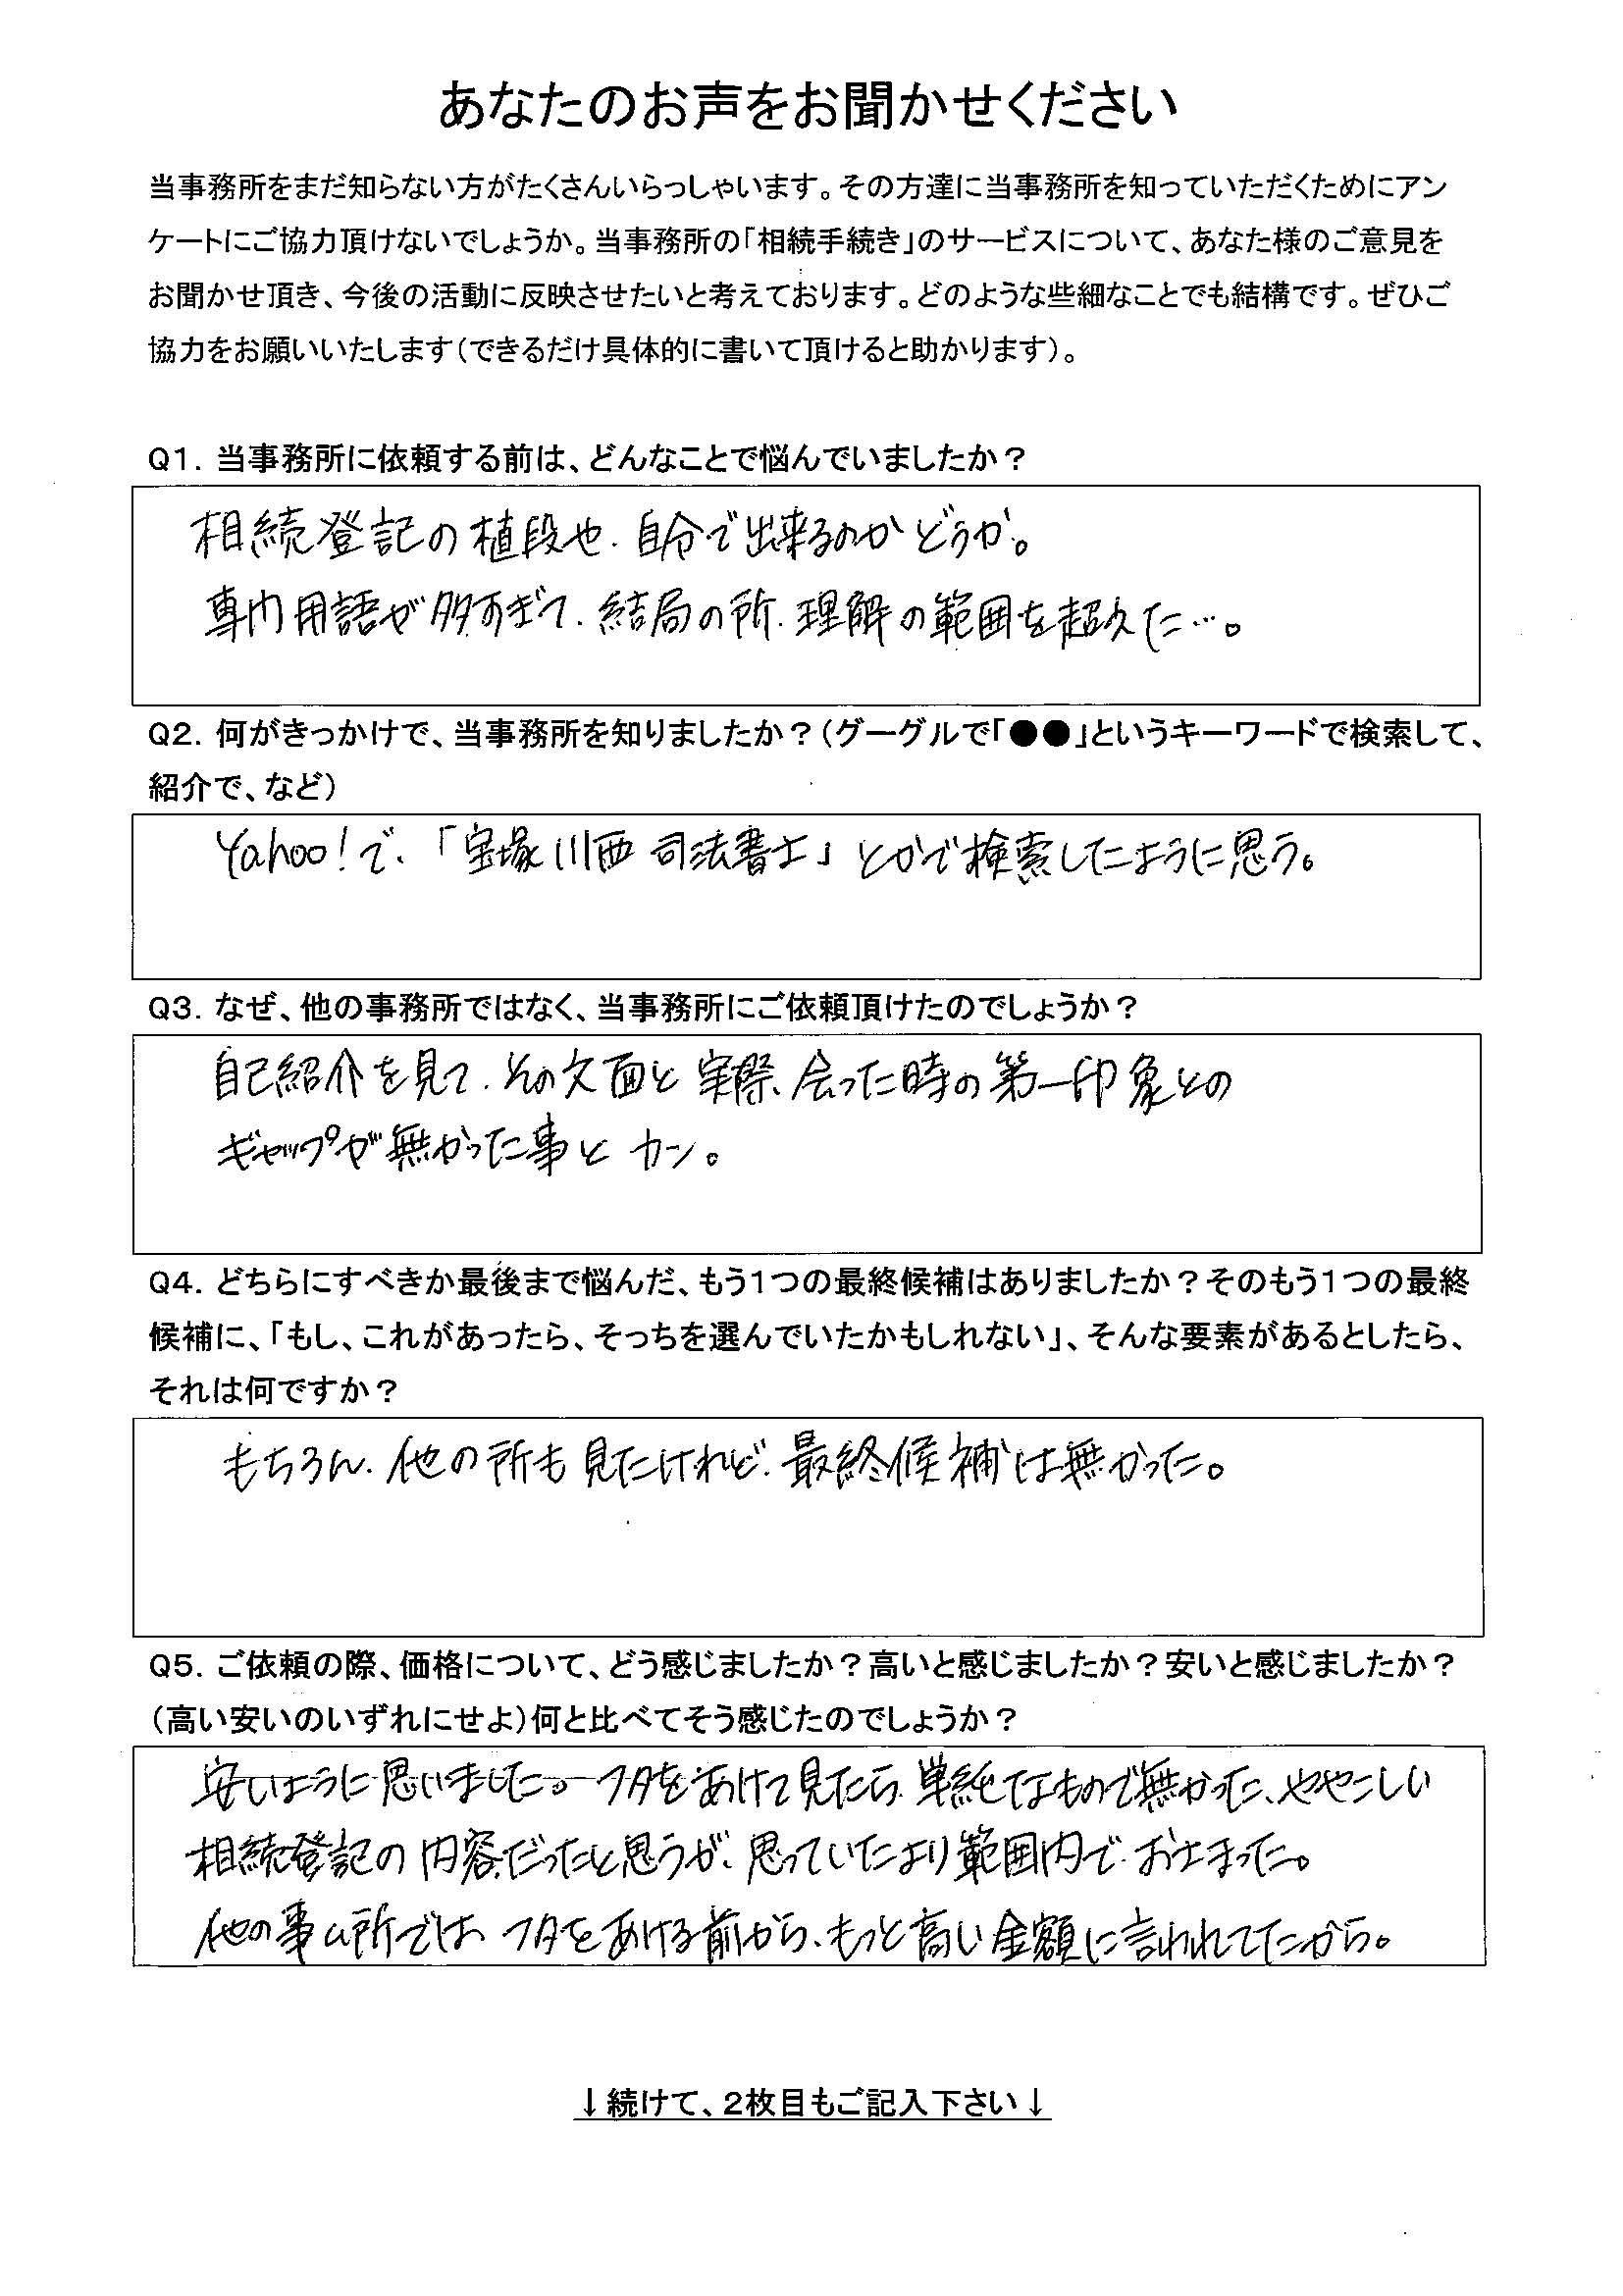 あなたのお声をお聞かせください
当事務所をまだ知らない方がたくさんいらっしゃいます。その方達に当事務所を知っていただくためにアン
ケートにご協力頂けないでしょうか。当事務所の「相続手続き」のサービスについて、あなた様のご意見を
お聞かせ頂き、今後の活動に反映させたいと考えております。どのような些細なことでも結構です。ぜひご
協力をお願いいたします(できるだけ具体的に書いて頂けると助かります)。
Q1. 当事務所に依頼する前は、どんなことで悩んでいましたか?
相続登記の植段や、自分で出来るのかどうか。
専門用語が多すぎて、結局の所、理解の範囲を超えた…。
Q2. 何がきっかけで、当事務所を知りましたか?(グーグルで「●●」というキーワードで検索して、
紹介で、など)
Yahoo!で、「宝塚 川西 司法書士」とかで検索したように思う。
Q3. なぜ、他の事務所ではなく、当事務所にご依頼頂けたのでしょうか?
自己紹介を見て、その文面と実際、会った時の第一印象との
ギャップが無かった事と カン。
Q4. どちらにすべきか最後まで悩んだ、もう1つの最終候補はありましたか?そのもう1つの最終
候補に、「もし、これがあったら、そっちを選んでいたかもしれない」、そんな要素があるとしたら、
それは何ですか?
もちろん、他の所も見たけれど、最終候補は無かった。
Q5. ご依頼の際、価格について、どう感じましたか?高いと感じましたか?安いと感じましたか?
(高い安いのいずれにせよ)何と比べてそう感じたのでしょうか?
安いように思いました。フタをあけて見たら、単純なもので無かった、ややこしい
相続登記の内容だったと思うが、思っていたより範囲内でおさまった。
他の事ム所では、フタをあける前から、もっと高い金額に言われてたから。
↓続けて、2枚目もご記入下さい↓